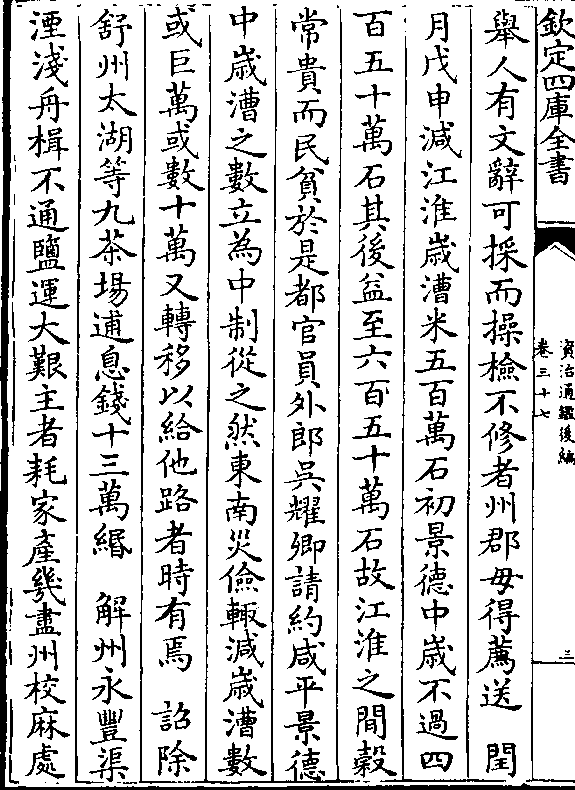 欽定四庫全書
資治通鑑後編
卷三十七
三
舉人有文辭可採而操檢不修者州郡毋得薦送　閏
月戊申減江淮歳漕米五百萬石初景德中歳不過四
百五十萬石其後益至六百五十萬石故江淮之間穀
常貴而民貧於是都官員外郎吳耀卿請約咸平景德
中歳漕之數立為中制從之然東南災儉輙減歳漕數
或巨萬或數十萬又轉移以給他路者時有焉　詔除
舒州太湖等九茶場逋息錢十三萬緡　解州永豐渠
湮淺舟楫不通鹽運大艱主者耗家產幾盡州校麻處